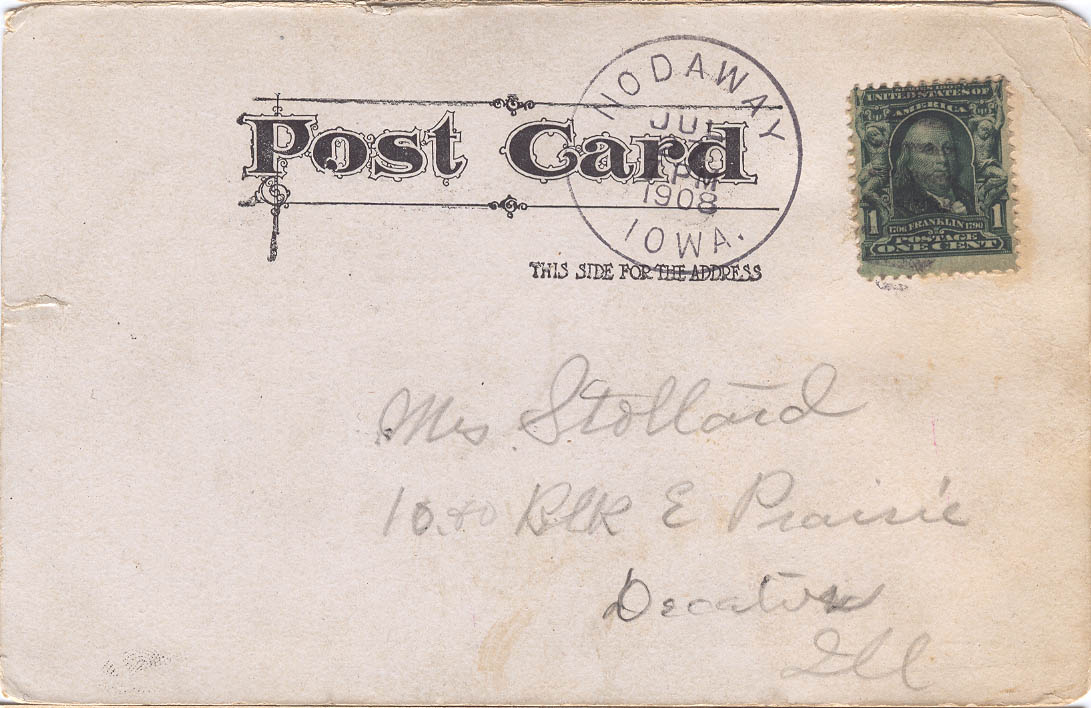 Post Card
NODAWAY
JUL
PM
1908
IOWA.
THIS SIDE FOR THE ADDRESS
UNITED STATES OF
AMERICA
1 1
1706 FRANKLIN 1790
POSTAGE
ONE CENT
Mrs Stollard
Blk E Prairie
Decatur
Ill